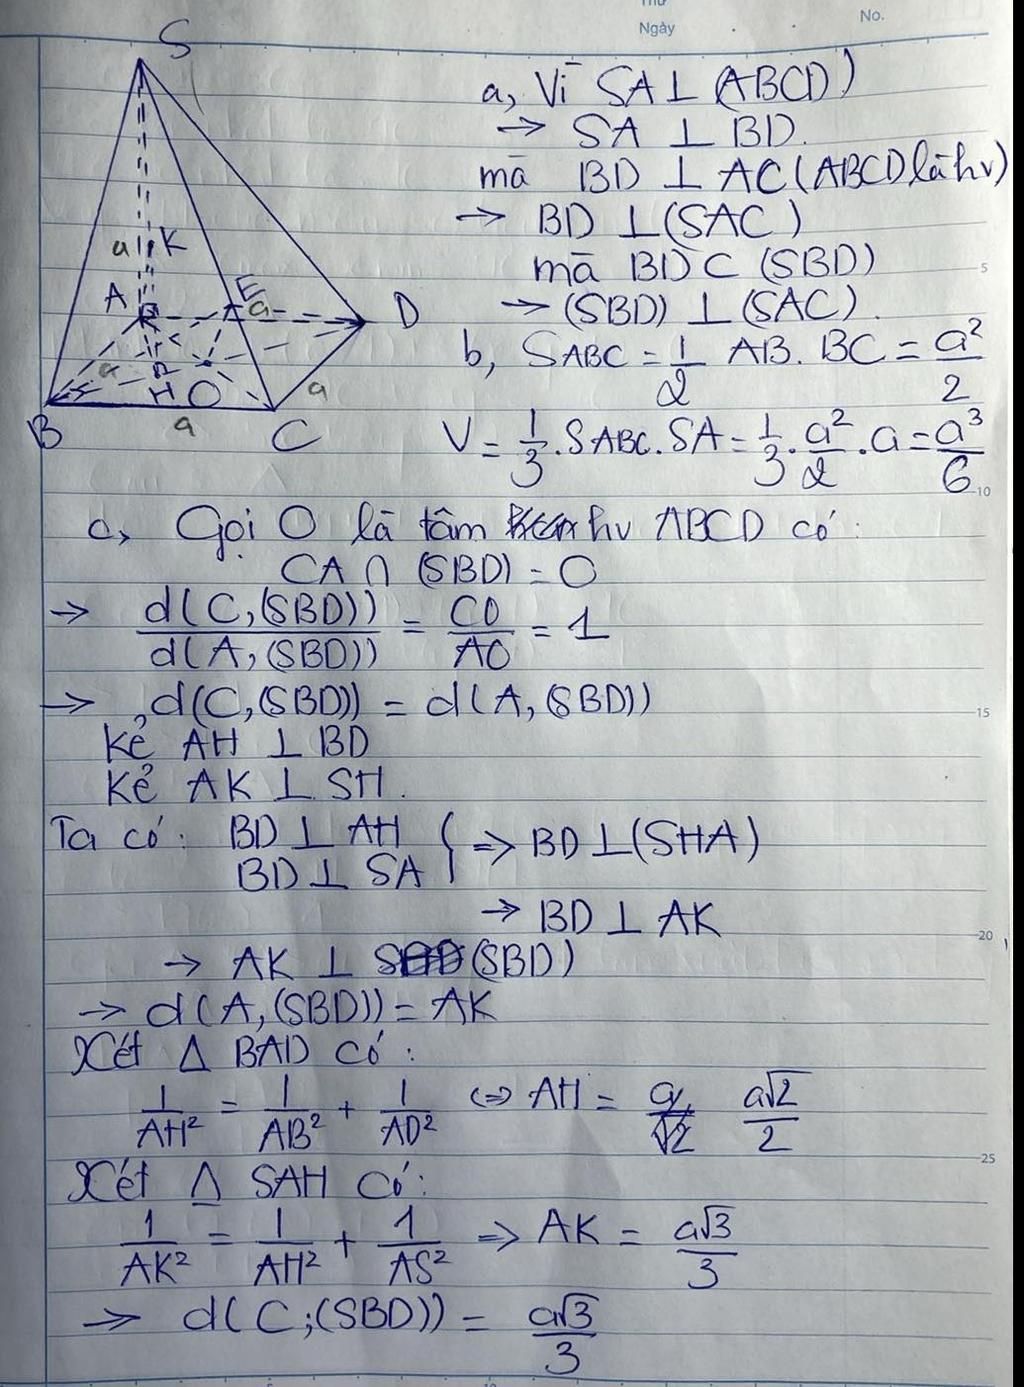 Thứ
Ngày
No.
S
a K
A
E
a
D
a
H O
a
B
a
C
a, Vì SA ⊥ (ABCD)
→ SA ⊥ BD.
mà BD ⊥ AC (ABCD là hv)
→ BD ⊥ (SAC)
mà BD ⊂ (SBD)
→ (SBD) ⊥ (SAC).
b, SABC = 1/2 AB. BC = a²/2
V = 1/3 . SABC. SA = 1/3 . a²/2 . a = a³/6
c, Gọi O là tâm hv ABCD có:
CA ∩ (SBD) = O
→ d(C,(SBD))/d(A,(SBD)) = CO/AO = 1
→ d(C,(SBD)) = d(A,(SBD))
Kẻ AH ⊥ BD
Kẻ AK ⊥ SH.
Ta có: BD ⊥ AH
BD ⊥ SA } => BD ⊥ (SHA)
→ BD ⊥ AK
→ AK ⊥ (SBD)
→ d(A,(SBD)) = AK
Xét Δ BAD có:
1/AH² = 1/AB² + 1/AD² <=> AH = a√2/2
Xét Δ SAH có:
1/AK² = 1/AH² + 1/AS² => AK = a√3/3
→ d(C;(SBD)) = a√3/3
5
10
15
20
25